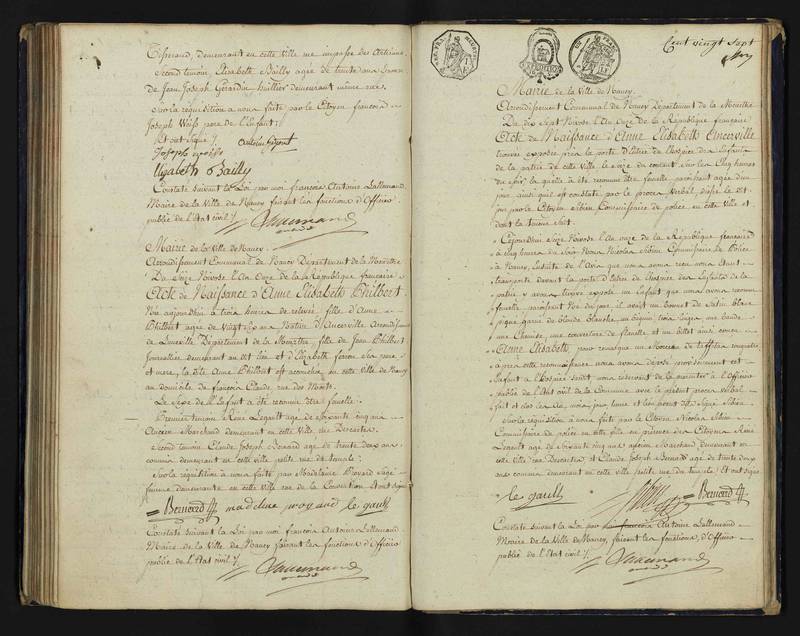 Tisserand, demeurant en cette Ville me impasse des Artisans
Second temoin, Elisabeth Bailly agée de trente ans femme
de Jean Joseph Gerardin huillier demeurant même rue
Sur la réquisition a nous faite par le Citoyen francois
Joseph Weiss pere de l'Enfant /.
Et ont signé /.
Joseph
Elizabeth Bailly
Constaté suivant la Loi par moi françois Antoine Lallemand
Maire de la Ville de Nancy faisant les fonctions d'Officier
public de l'Etat civil /.
Lallemand
Mairie de la Ville de Nancy.
Arrondissement Communal de Nancy Département de la Meurthe
Du Seize Nivose l'An Onze de la République française
Acte de Naissance d'Anne Elisabeth Philbert
Née aujourdhui à trois heures de relevée, fille d'Anne
Philbert agée de Vingt ans Native d'Ancerville Arrondissement
de Luneville Département de la Meurthe, fille de Jean Philbert
Journallier demeurant au dit lieu et d'Elizabeth ses pere
et mere, la dite Anne Philbert est accouchée en cette Ville de Nancy
au domicile de françois Claude rue des Monts.
Le Sexe de l'Enfant a été reconnu être femelle.
Premier temoin, René Legault agé de Soixante cinq ans
Ancien Marchand demeurant en cette Ville rue Descartes.
Second temoin Claude Joseph Bernard agé de trente deux ans
commis demeurant en cette ville petite rue
Sur la réquisition à nous faite par Madelaine Provard Sage
femme demeurante en cette Ville rue de la Convention Et ont signé
Bernard madeleine provard le gault
Constaté suivant la Loi par moi françois Antoine Lallemand
Maire de la Ville de Nancy faisant les fonctions d'Officier
public de l'Etat civil /.
Lallemand
Cent vingt Sept
Mairie de la Ville de Nancy.
Arrondissement Communal de Nancy Département de la Meurthe
Du dix Sept Nivose l'An Onze de la République française
Acte de Naissance d'Anne Elisabeth Ancerville
trouvée exposée près la porte d'Entrée de l'hospice des Enfants
de la patrie de cette Ville le Seize du courant Sur les Cinq heures
du Soir, la quelle a été reconnue être femelle, paroissant agée d'un
jour, ainsi qu'il est constaté par le procès Verbal, dressé le dit
jour par le Citoyen Commissaire de police en cette Ville et
dont la teneur Suit.
Cejourdhui Seize Nivose l'An onze de la République française
à cinq heures du Soir Nous Nicolas Commissaire de Police
à Nancy, Ensuite de l'Avis que nous avons reçu nous étant
transporté devant la porte d'Entrée de l'hospice des Enfants de la
patrie y avons trouvé exposé un Enfant que nous avons reconnu
femelle, paroissant Né du jour, il avoit un bonnet de Satin blanc
piqué garni de blonde blanche, un béguin, trois langes une bande
une Chemise, une couverture de flanelle, et un billet ainsi concu
Anne Elisabeth, pour remarque un Morceau de taffetas
après cette reconnoissance nous avons déposé provisoirement cet
Enfant à l'hospice Nous reservant de la presenter à l'Officier
public de l'Etat civil de la Commune avec le présent procès Verbal
fait et clos les an, mois, jour, heure et lieu avant dits Signé
Sur la réquisition à nous faite par le Citoyen Nicolas
Commissaire de police en cette Ville en présence des Citoyens René
Legault agé de Soixante cinq ans ancien Marchand demeurant en
cette ville rue Descartes, et Claude Joseph Bernard agé de trente deux
ans commis demeurant en cette ville petite rue Et ont signé
le gault Bernard
Constaté suivant la Loi par moi françois Antoine Lallemand
Maire de la Ville de Nancy, faisant les fonctions d'Officier
public de l'Etat civil /.
Lallemand